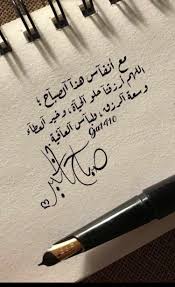 مع أنفاس هذا الصباح ؛
اللهم ارزقنا حلو الحياة، وخير العطاء
وسعة الرزق، ولباس العافية
صباح الخير